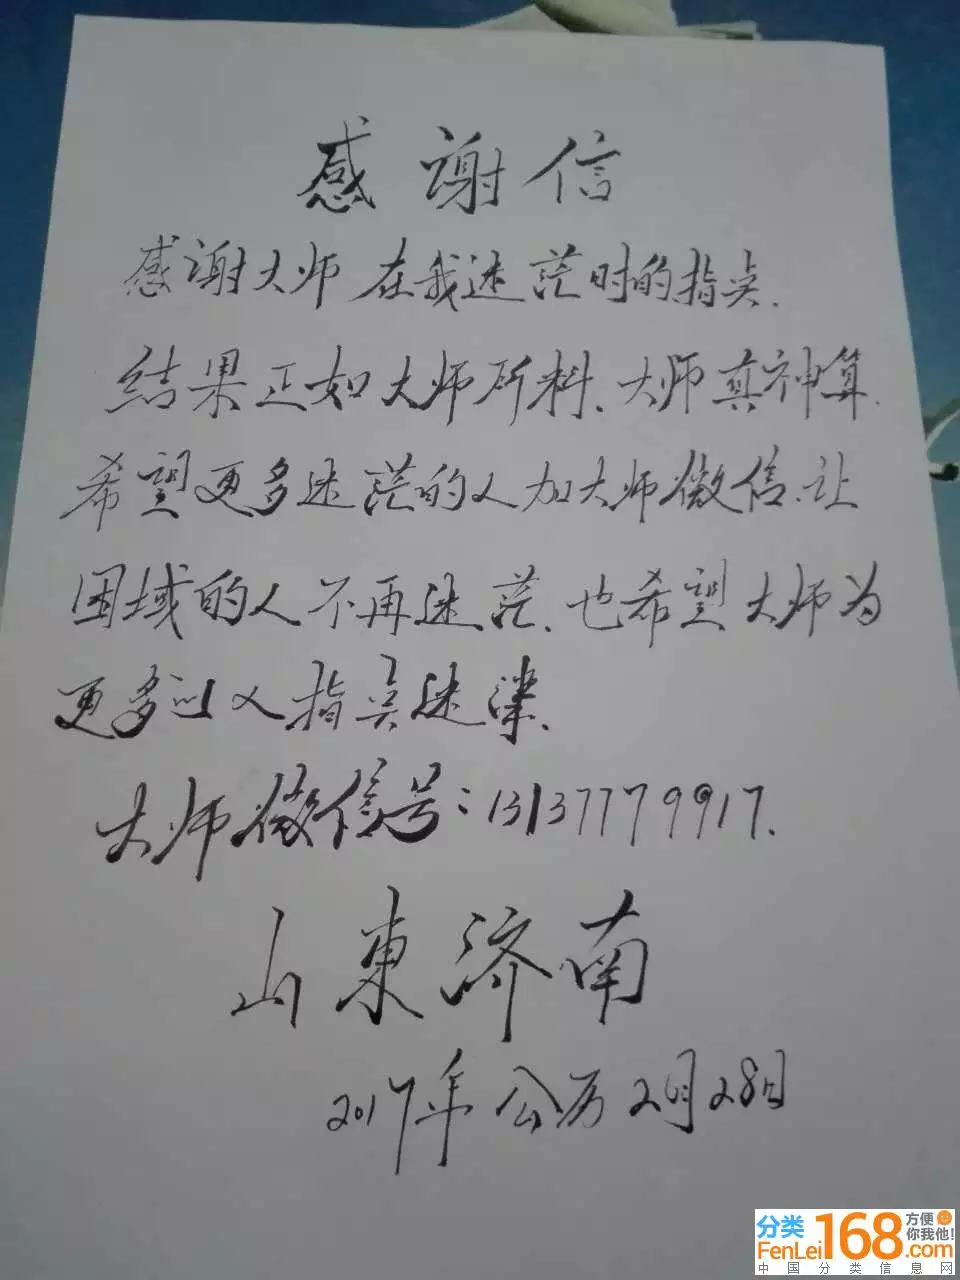 感谢信
感谢大师在我迷茫时的指点.
结果正如大师所料、大师真神算.
希望更多迷茫的人加大师微信、让
困域的人不再迷茫、也希望大师为
更多的人指点迷津、
大师微信号:13137779917.
山東济南
2017年公历2月28日
分类168方便你我他!
FenLei168.com
中国分类信息网